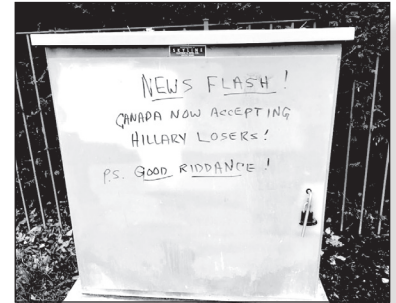 SKYLINE
NEWS FLASH!
CANADA NOW ACCEPTING
HILLARY LOSERS!
P.S. GOOD RIDDANCE!